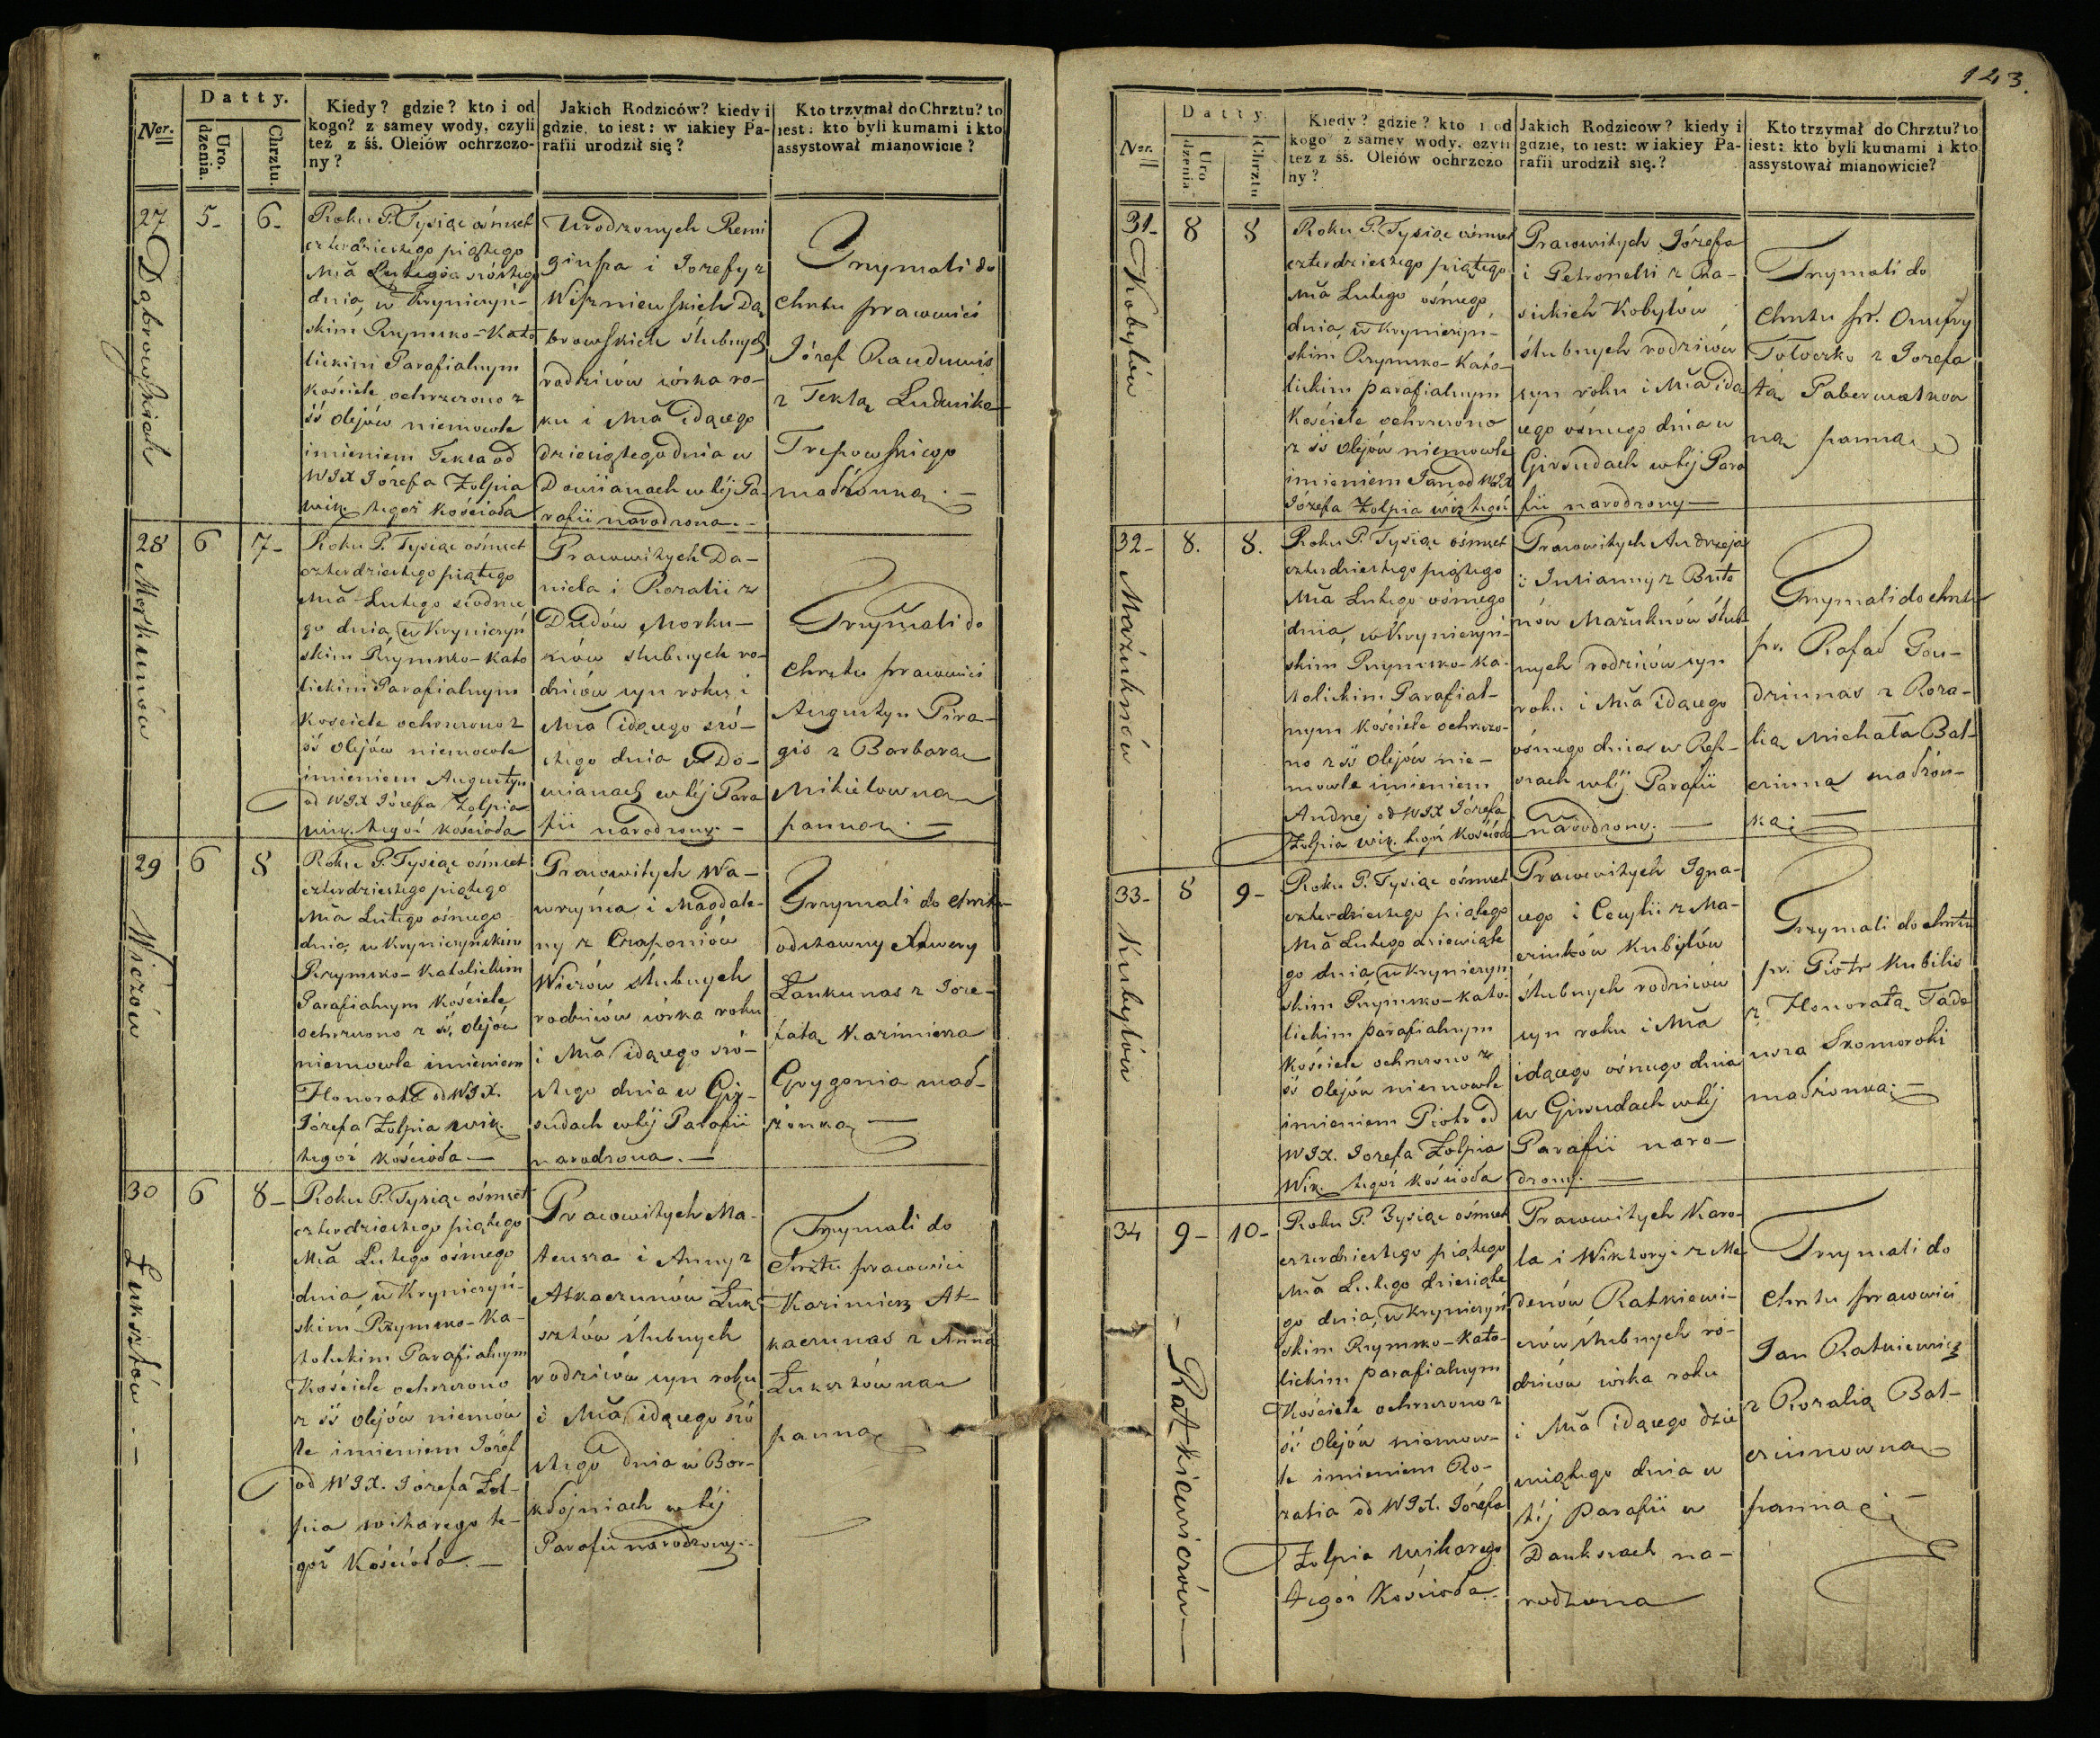 Datty.
Ner.
Uro.
dzenia.
Chrztu.
Kiedy? gdzie? kto i od
kogo? z samey wody, czyli
też z śś. Oleiów ochrzczo-
ny?
Jakich Rodziców? kiedy i
gdzie, to iest: w iakiey Pa-
rafii urodził się?
Kto trzymał do Chrztu? to
iest: kto byli kumami i kto
assystował mianowicie?
27
Dąbrowskich
5-
6-
Roku P. Tysiąc ośmset
czterdziestego piątego
Mca Lutego szóstego
dnia, w Kryniczyń-
skim Rzymsko-Kato
lickim Parafialnym
Kościele ochrzczono z
śś Olejów niemowle
imieniem Tekla od
WJX Józefa Żołpia
wik. tegoż Kościoła
Urodzonych Remi
giusza i Jozefy z
Wiszniewskich Dą
browskich ślubnych
rodziców córka ro-
ku i Mca idącego
dziesiątego dnia w
Dowianach w téj Pa-
rafii narodzona.-
Trzymali do
chrztu pracowici
Józef Rauduwis
z Teklą Ludwika
Trepowskiego
małżonką.-
28
Morkunów
6
7-
Roku P. Tysiąc ośmset
czterdziestego piątego
Mca Lutego siodme
go dnia, w Krynieczyń
skim Rzymsko-Kato
lickim Parafialnym
Kosciele ochrzczono z
śś Olejów niemowle
imieniem Augustyn
od WJX Józefa Żołpia
wik. tegoż kościoła
Pracowitych Da-
niela i Rozalii z
Dudów Morku-
nów ślubnych ro-
dziców syn roku, i
Mca idącego szó-
stego dnia w Do-
wianach w téj Para
fii narodzony.-
Trzymali do
chrztu pracowici
Augustyn Pira-
gis z Barbarą
Mikielowną
panną.-
29
Wiczów
6
8
Roku P. Tysiąc ośmset
czterdziestego piątego
Mca Lutego ósmego
dnia, w Krynieczyńskim
Rzymsko-Katolickim
Parafialnym Kościele
ochrzczono z śś. olejów
niemowle imieniem
Honorata od WJX.
Józefa Żołpia wik.
tegoż kościoła.-
Pracowitych Wa-
wrzyńca i Magdale-
ny z Czaponiów
Wiczów ślubnych
rodziców córka roku
i Mca idącego szó-
stego dnia w Gir-
sudach w téj Parafii
narodzona.-
Trzymali do chrztu
odstawny Xawery
Łankunas z Joze-
fatą Kazimierza
Grygonia mał-
żonką-
30
Łuksztów.-
6
8-
Roku P. Tysiąc ośmset
czterdziestego piątego
Mca Lutego ósmego
dnia w Krynieczyń-
skim Rzymsko-Ka-
tolickim Parafialnym
Kościele ochrzczono
z śś olejów niemow
le imieniem Józef
od WJX. Józefa Żoł-
pia wikarego te-
goż Kościoła.-
Pracowitych Ma-
teusza i Anny z
Atkaczunów Łuk
sztów ślubnych
rodziców syn roku
i Mca idącego szó
stego dnia w Bor-
kłojniach w téj
Parafii narodzony.-
Trzymali do
Chrztu pracowici
Kazimierz At-
kaczunas z Anną
Łuksztówną
panną
123.
Datty
Ner.
Uro
dzenia.
Chrztu
Kiedy? gdzie? kto i od
kogo? z samey wody, czyli
też z śś. Oleiów ochrzczo
ny?
Jakich Rodziców? kiedy i
gdzie, to iest: w iakiey Pa-
rafii urodził się.?
Kto trzymał do Chrztu? to
iest: kto byli kumami i kto
assystował mianowicie?
31-
Kobylów
8
8
Roku P. Tysiąc ośmset
czterdziestego piątego
Mca Lutego ośmego
dnia, w Krynieczyń-
skim Rzymsko-Kato-
lickim parafialnym
Kościele ochrzczono
z śś Olejów niemowle
imieniem Jan od WJX
Józefa Żołpia wik tegoż
Pracowitych Józefa
i Petronelli z Ra-
sickich Kobylów
ślubnych rodziców
syn roku i Mca idą
cego ośmego dnia w
Girsudach w téj Para
fii narodzony-
Trzymali do
Chrztu pr. Onufry
Tołoczko z Jozefa
tą Paberwałkow
ną panną
32-
Mażuknów
8.
8.
Roku P. Tysiąc ośmset
czterdziestego piątego
Mca Lutego ośmego
dnia, w Krynieczyń-
skim Rzymsko-Ka-
tolickim Parafial-
nym Kosciele ochrzczo-
no z śś Olejów nie-
mowle imieniem
Andrzej od WJX Józefa
Żołpia wik. tegoż Kościoła
Pracowitych Andrzeja
i Juliianny z Buto
nów Mażuknów ślub
nych rodziców syn
roku i Mca idącego
ósmego dnia w Rek-
ściach w téj Parafii
narodzony.-
Trzymali do chrztu
pr. Rafał Gou-
dziunas z Roza-
lią Michała Bal-
cziuna małżon-
ką.-
33-
Kubylów
8
9-
Roku P. Tysiąc ośmset
czterdziestego piątego
Mca Lutego dziewiąte
go dnia, w Krynieczyń
skim Rzymsko-Kato-
lickim parafialnym
Kościele ochrzczono z
śś Olejów niemowle
imieniem Piotr od
WJX. Jozefa Żołpia
Wik. tegoż kościoła
Pracowitych Igna-
cego i Cecylii z Ma-
cinków Kubylów
ślubnych rodziców
syn roku i Mca
idącego ośmego dnia
w Girsudach w téj
Parafii naro-
dzony.-
Trzymali do chrztu
pr. Piotr Kubilis
z Honoratą Tade
usza Skomoroki
małżonką.-
34
Ratkiewiczów-
9-
10-
Roku P. Tysiąc ośmset
czterdziestego piątego
Mca Lutego dziesiąte
go dnia, w Krynieczyń
skim Rzymsko-Kato-
lickim parafialnym
Kościele ochrzczono z
śś Olejów niemow-
le imieniem Ro-
zalia od WJX. Józefa
Żołpia Wikarego
tegoż Kościoła.-
Pracowitych Karo-
la i Wiktoryi z Me
denów Ratkiewi-
czów ślubnych ro-
dziców córka roku
i Mca idącego dzie
wiątego dnia w
téj Parafii w
Daukszach na-
rodzona
Trzymali do
Chrztu pracowici
Jan Ratkiewicz
z Rozalią Bal-
cziunowną
panną.-